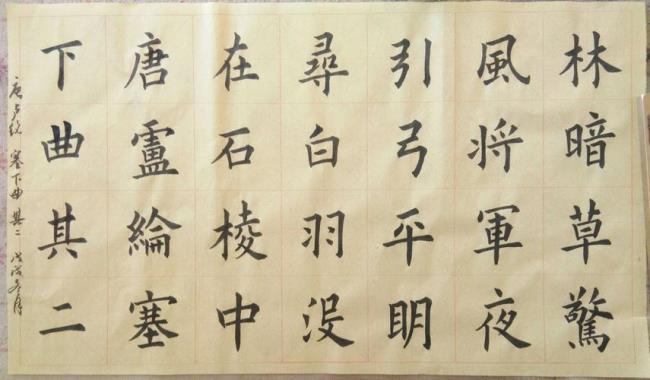 林暗草驚
風將軍夜
引弓平明
尋白羽没
在石棱中
唐盧綸塞
下曲其二
唐盧綸 塞下曲 其二 戊戌冬月